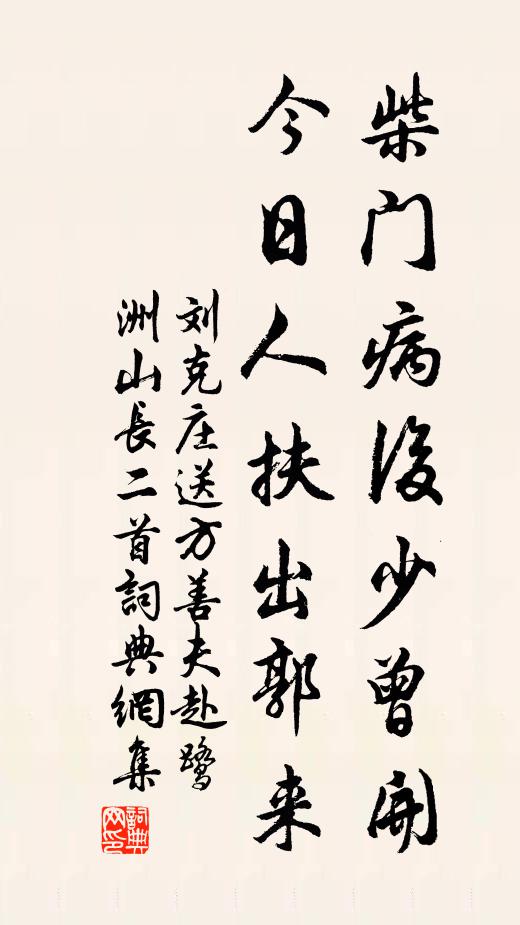 柴门病後少曾開
今日人扶出郭来
刘克庄送方善夫赴鹭
洲山長二首詞典網集
詞典
网印